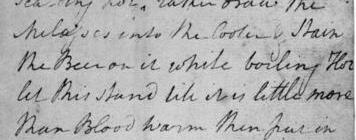 rather draw the
Melasses into the Cooler & Stain
the Beer on it while boiling Hot
let this stand till it is little more
than Blood warm then put in